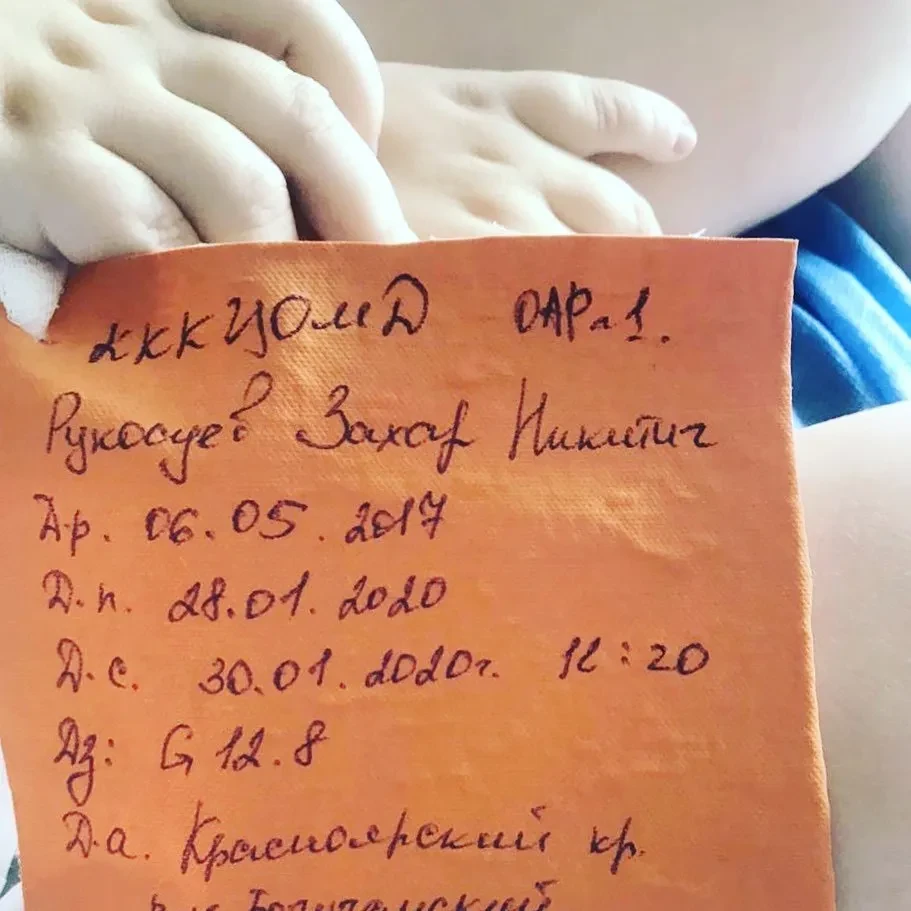 ККК ЦОМД ОАР №1.
Рукосуев Захар Никитич
Д.р. 06.05.2017
Д.п. 28.01.2020
Д.с. 30.01.2020г. 12:20
Дз: G 12.8
Д.а. Красноярский кр.
р-н Богучанский